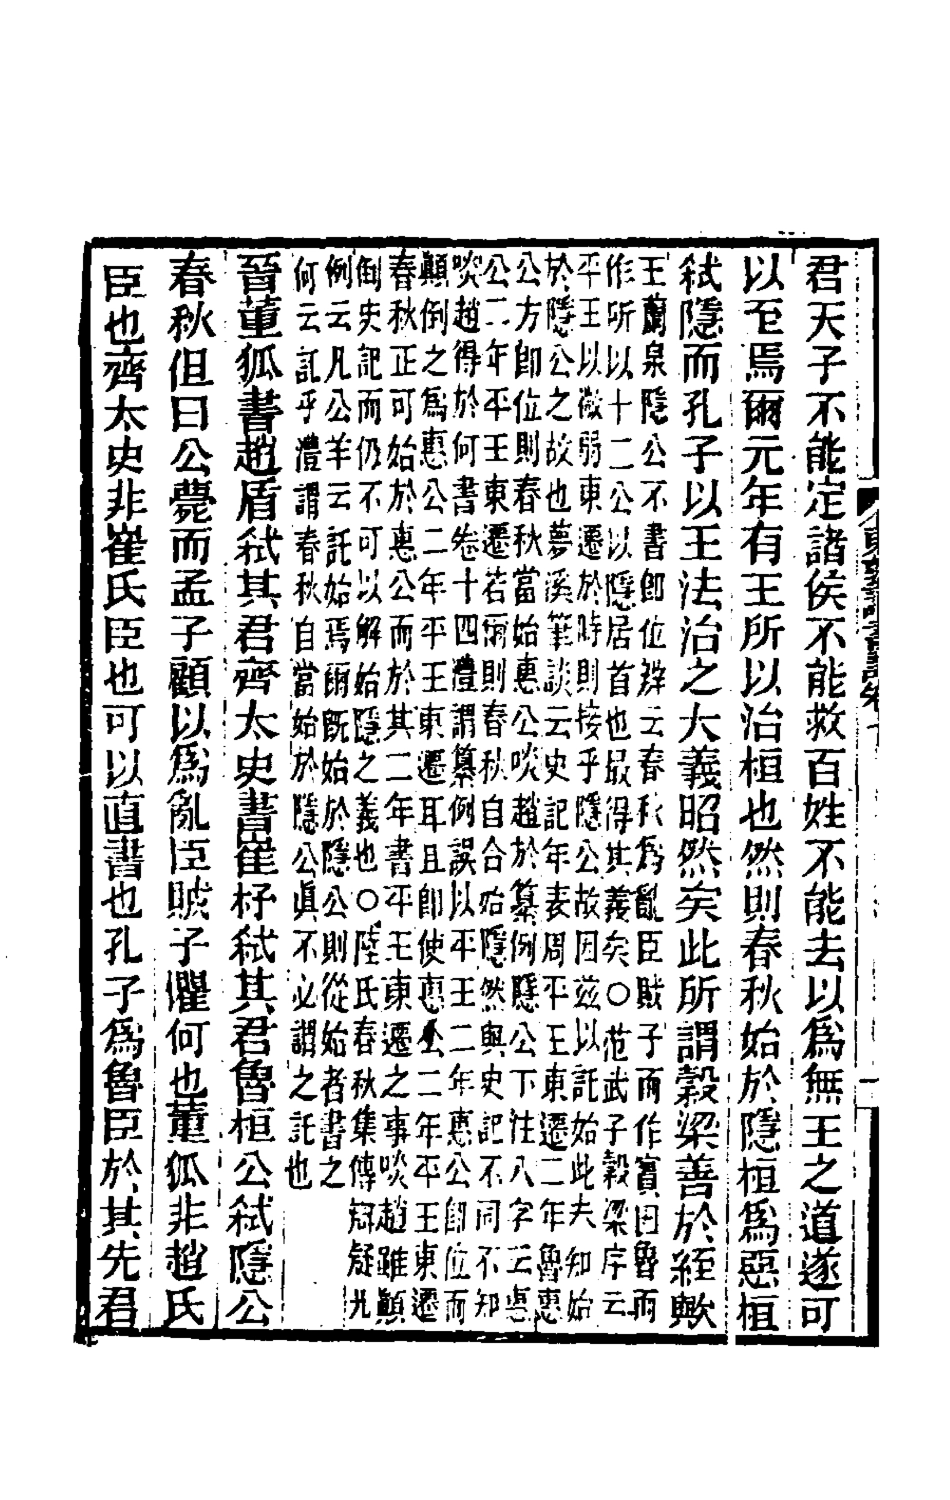 君天子不能定諸侯不能救百姓不能去以為無王之道遂可
以至焉爾元年有王所以治桓也然則春秋始於隱桓為惡桓
弒隱而孔子以王法治之大義昭然矣此所謂穀梁善於經歟
王蘭泉隱公不書卽位辨云春秋為亂臣賊子而作實因魯而
作所以十二公以隱居首也最得其義矣○范武子穀梁序云
平王以微弱東遷於時則接乎隱公故因茲以託始此夫知始
於隱公之故也夢溪筆談云史記年表周平王東遷二年魯惠
公方卽位則春秋當始惠公啖趙於纂例隱公下注八字云惠
公二年平王東遷若爾則春秋自合始隱然與史記不同不知
啖趙得於何書卷十四澧謂纂例誤以平王二年惠公卽位而
顛倒之為惠公二年平王東遷耳且卽使惠公二年平王東遷
春秋正可始於惠公而於其二年書平王東遷之事啖趙雖顛
倒史記而仍不可以解始隱之義也○陸氏春秋集傳辯疑凡
例云凡公羊云託始焉爾旣始於隱公則從始者書之
何云託乎澧謂春秋自當始於隱公眞不必謂之託也
晉董狐書趙盾弒其君齊太史書崔杼弒其君魯桓公弒隱公
春秋但曰公薨而孟子顧以為亂臣賊子懼何也董狐非趙氏
臣也齊太史非崔氏臣也可以直書也孔子為魯臣於其先君